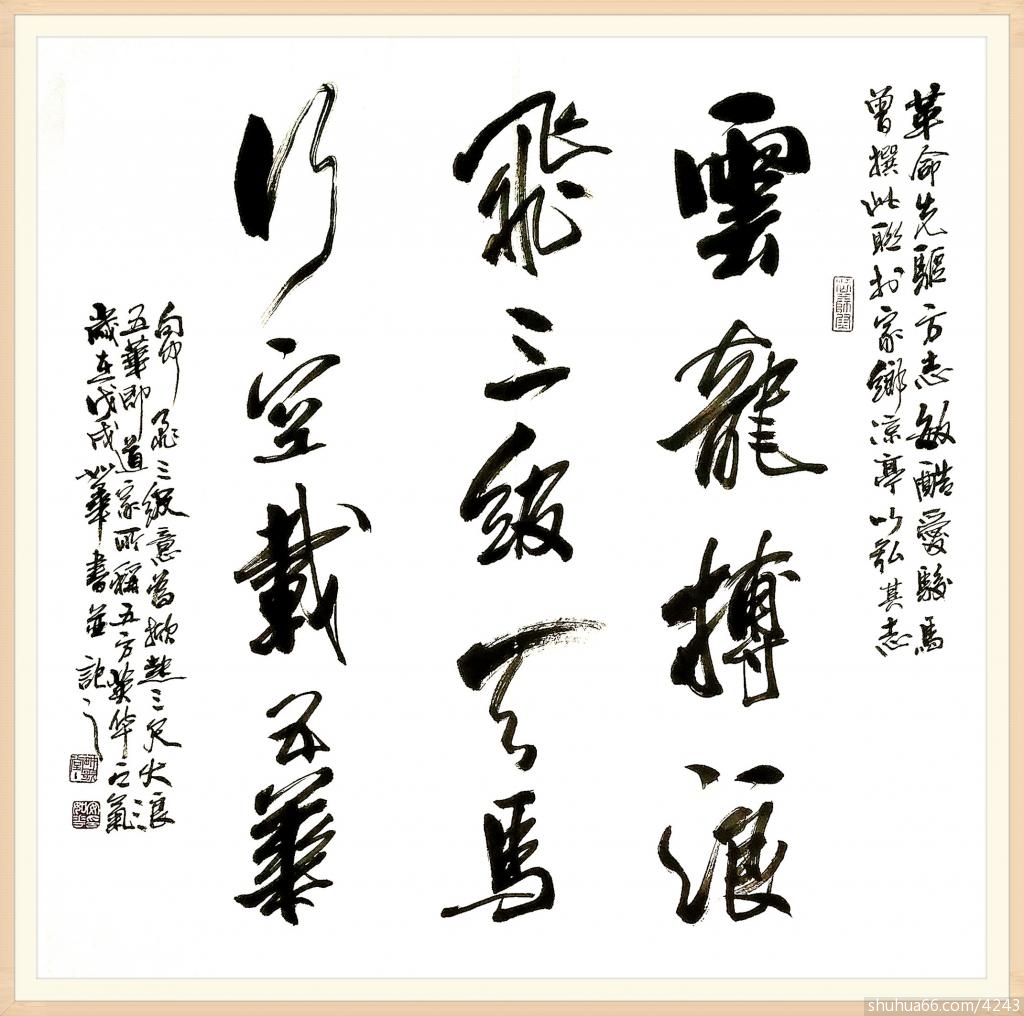 革命先驅方志敏酷愛駿馬
曾撰此聯於家鄉涼亭以弘其志
雲龍搏浪
飛三級天馬
行空載五華
句中飛三級意當掀起三尺大浪
五華即道家所稱五方英华之氣
歲在戊戌如華書並記之
shuhua66.com/4243